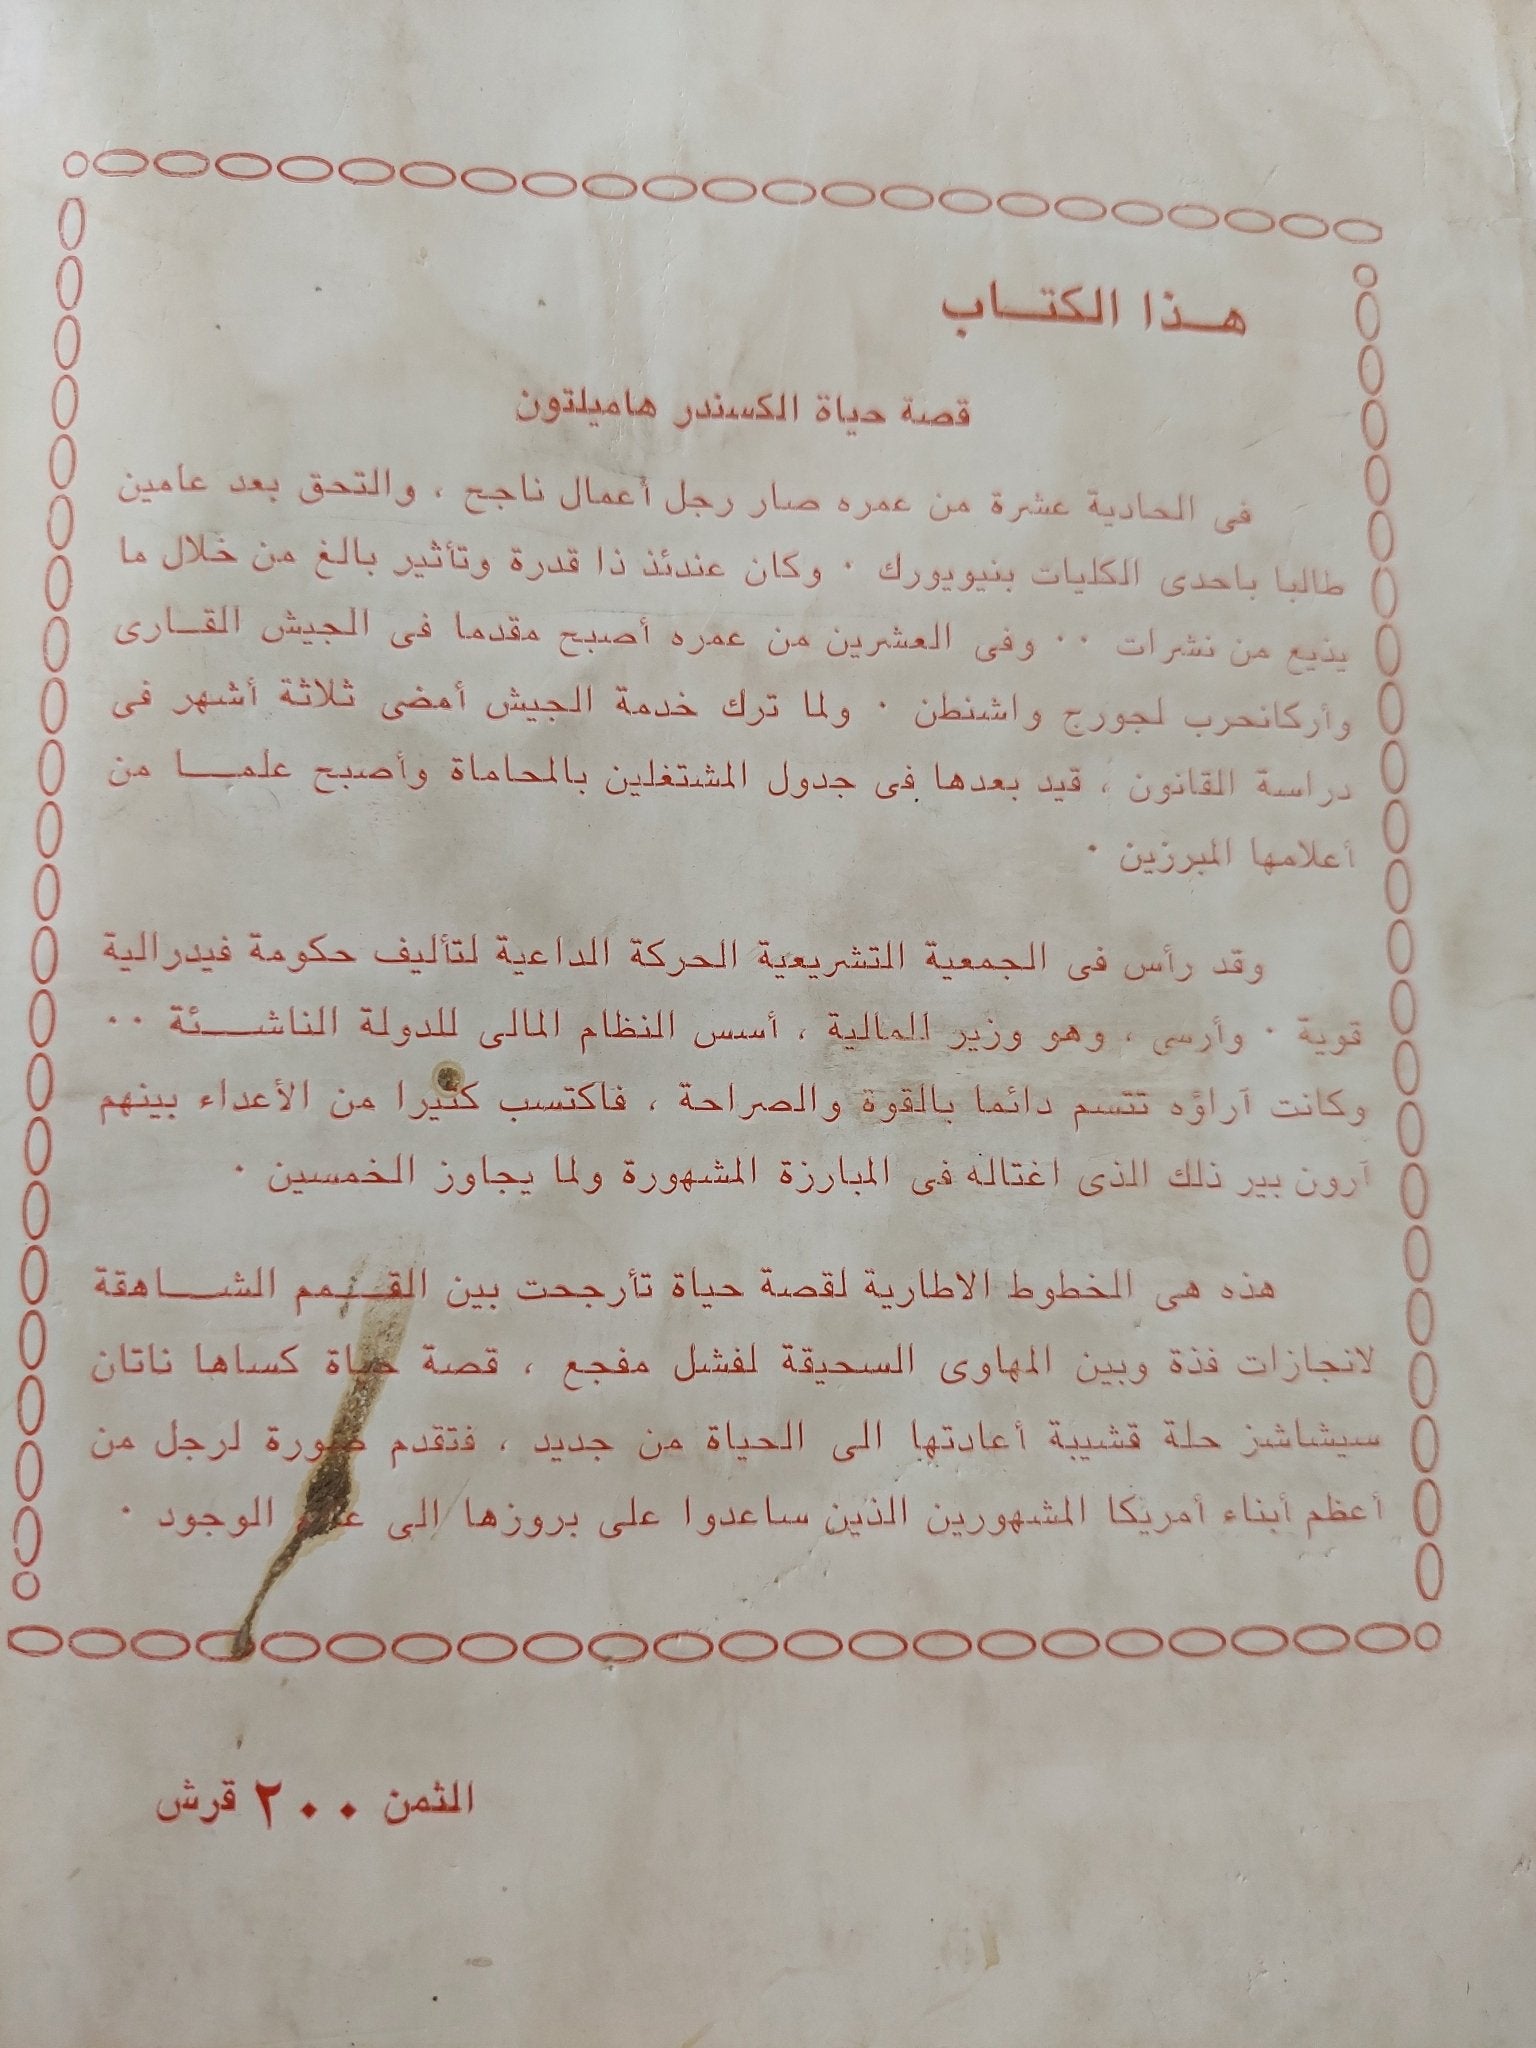 هـذا الكتـاب
قصة حياة الكسندر هاميلتون
فى الحادية عشرة من عمره صار رجل أعمال ناجح ، والتحق بعد عامين
طالبا باحدى الكليات بنيويورك · وكان عندئذ ذا قدرة وتأثير بالغ من خلال ما
يذيع من نشرات ·· وفى العشرين من عمره أصبح مقدما فى الجيش القارى
وأركانحرب لجورج واشنطن · ولما ترك خدمة الجيش أمضى ثلاثة أشهر فى
دراسة القانون ، قيد بعدها فى جدول المشتغلين بالمحاماة وأصبح علما من
أعلامها المبرزين ·
وقد رأس فى الجمعية التشريعية الحركة الداعية لتأليف حكومة فيدرالية
قوية · وأرسى ، وهو وزير للمالية ، أسس النظام المالى للدولة الناشئة ··
وكانت آراؤه تتسم دائما بالقوة والصراحة ، فاكتسب كثيرا من الأعداء بينهم
آرون بير ذلك الذى اغتاله فى المبارزة المشهورة ولما يجاوز الخمسين ·
هذه هى الخطوط الاطارية لقصة حياة تأرجحت بين القمم الشاهقة
لانجازات فذة وبين المهاوى السحيقة لفشل مفجع ، قصة حياة كساها ناتان
سيشاشنز حلة قشيبة أعادتها الى الحياة من جديد ، فتقدم صورة لرجل من
أعظم أبناء أمريكا المشهورين الذين ساعدوا على بروزها الى الوجود ·
الثمن ٢٠٠ قرش